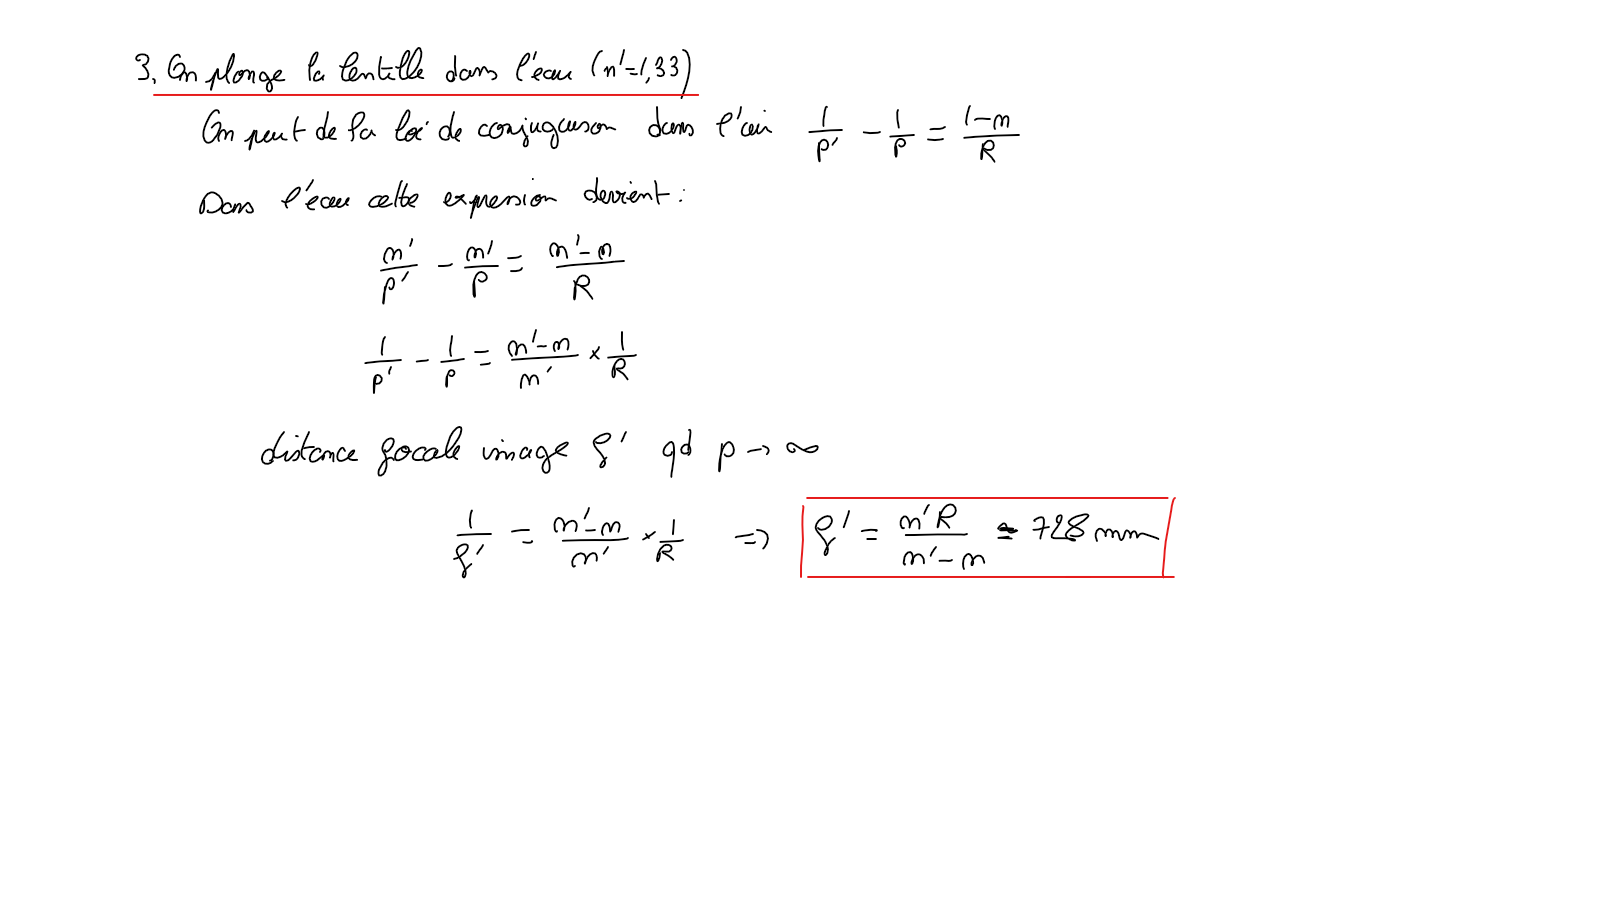 3. On plonge la lentille dans l'eau (n'=1,33)
On part de la loi de conjugaison dans l'air 1/p' - 1/p = (1-n)/R
Dans l'eau cette expression devient :
n'/p' - n'/p = (n'-n)/R
1/p' - 1/p = (n'-n)/n' × 1/R
distance focale image f' qd p → ∞
1/f' = (n'-n)/n' × 1/R ⇒ f' = n'R/(n'-n) ≃ 728 mm